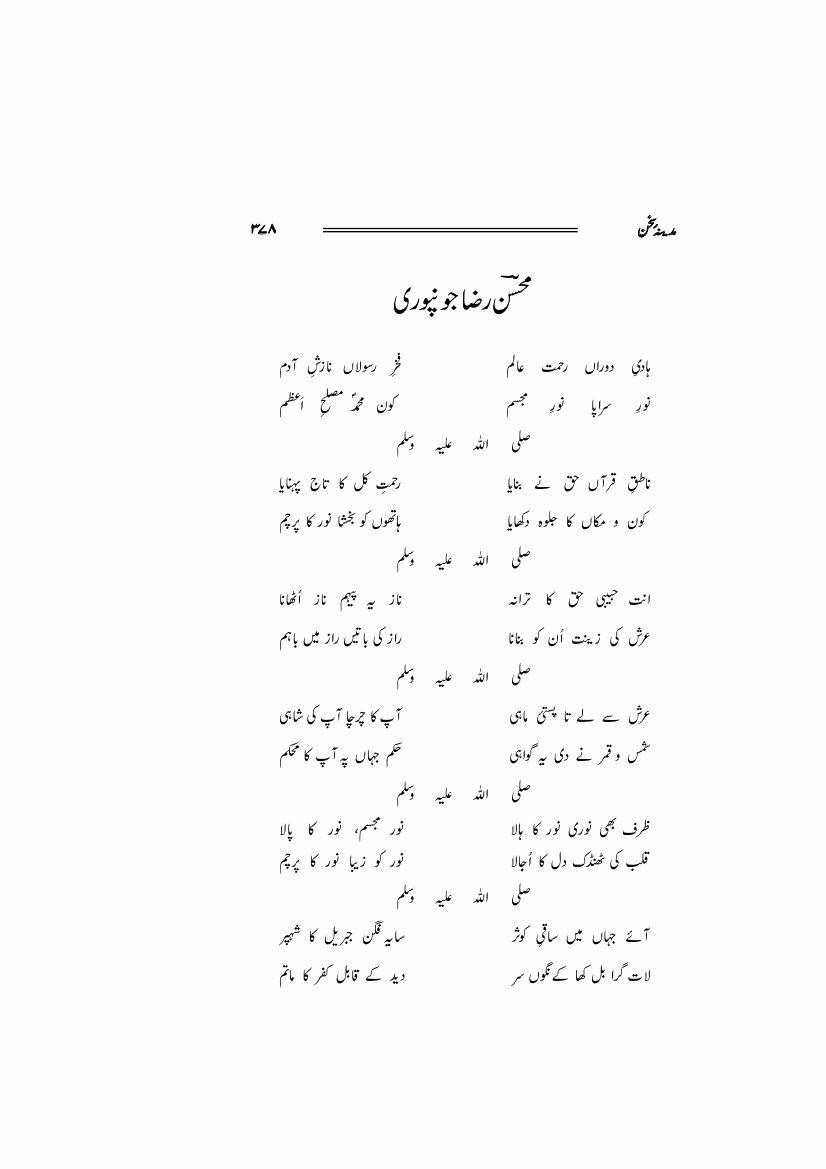 مدینہ سخن ۳۷۸
محسنؔ رضا جونپوری
ہادیِ دوراں رحمت عالم فخرِ رسولاں نازشِ آدم
نورِ سراپا نورِ مجسم کون محمدؐ مصلحِ اعظم
صلی اللہ علیہ وسلم
ناطقِ قرآں حق نے بنایا رحمتِ کل کا تاج پہنایا
کون و مکاں کا جلوہ دکھایا ہاتھوں کو بخشا نور کا پرچم
صلی اللہ علیہ وسلم
انت حبیبی حق کا ترانہ ناز یہ پیہم ناز اُٹھانا
عرش کی زینت اُن کو بنانا راز کی باتیں راز میں باہم
صلی اللہ علیہ وسلم
عرش سے لے تا پستیٔ ماہی آپ کا چرچا آپ کی شاہی
شمس و قمر نے دی یہ گواہی حکم جہاں پہ آپ کا محکم
صلی اللہ علیہ وسلم
ظرف بھی نوری نور کا ہالا نور مجسم، نور کا پالا
قلب کی ٹھنڈک دل کا اُجالا نور کو زیبا نور کا پرچم
صلی اللہ علیہ وسلم
آئے جہاں میں ساقیِ کوثر سایہ فگن جبریل کا شہپر
لات گرا بل کھا کے نگوں سر دید کے قابل کفر کا ماتم